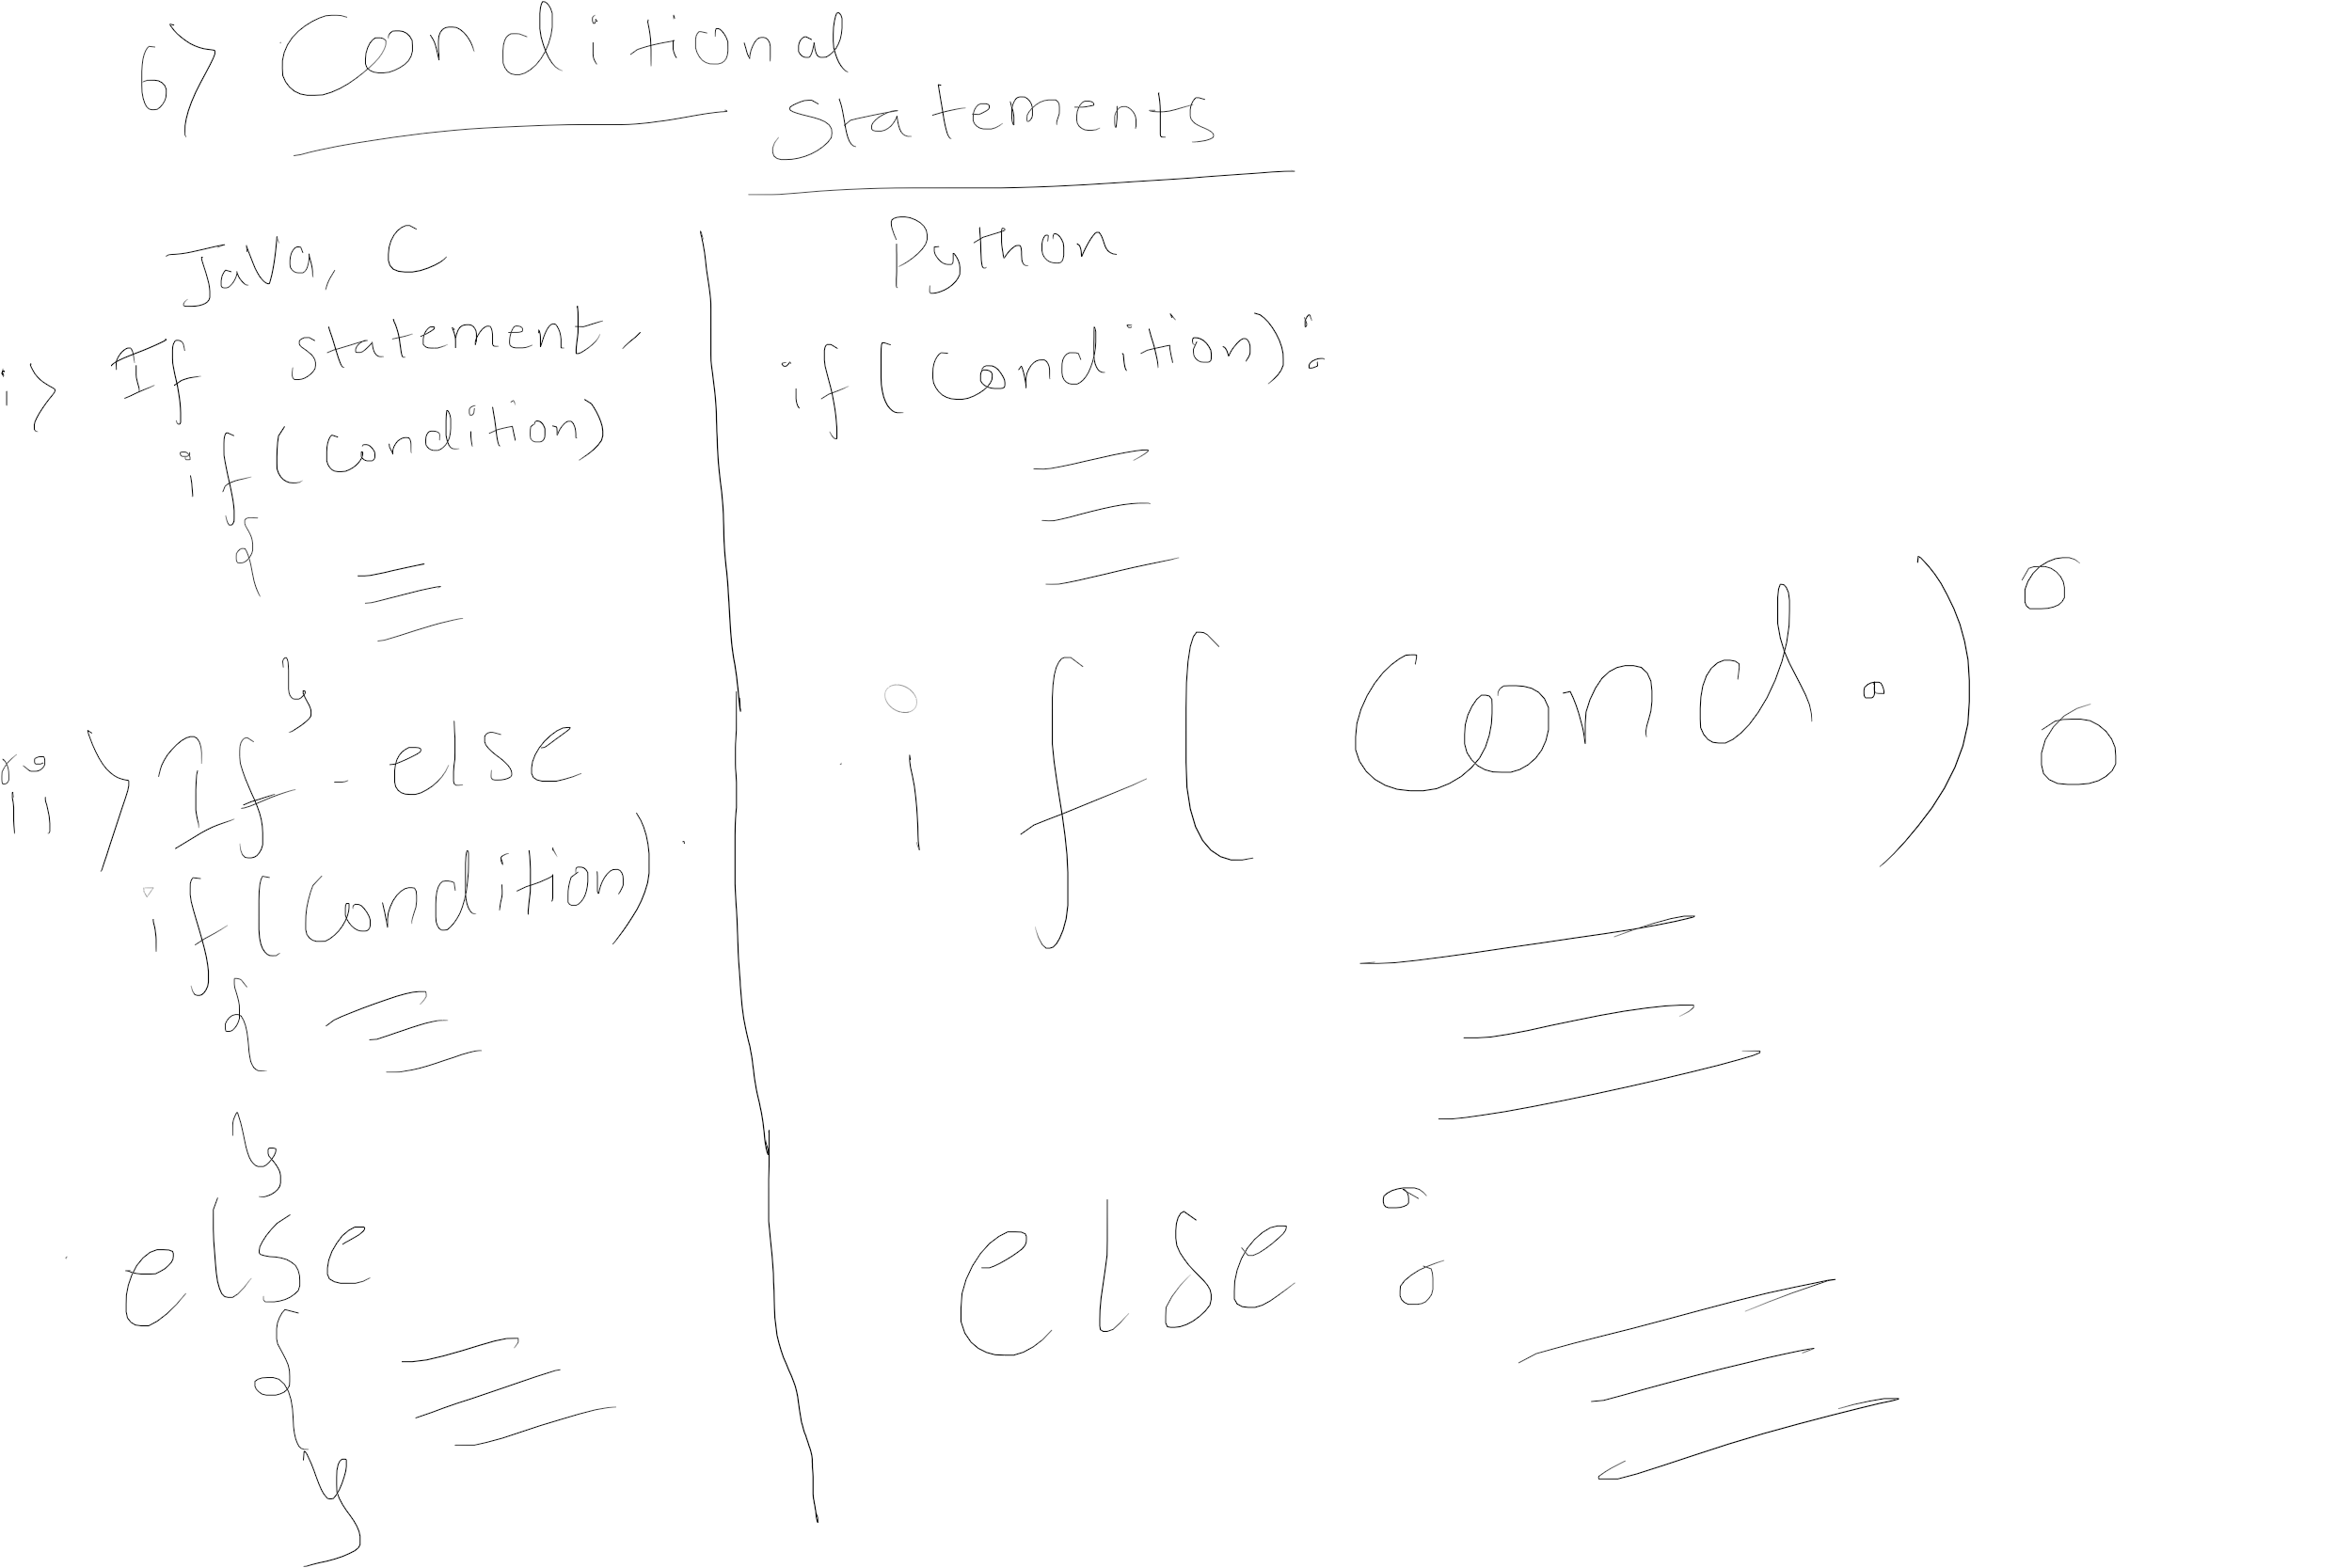 6> Conditional
Statements
Java, C
i> If statement,
if (Condition)
{
}
ii> If - else
if (Condition)
{
}
else
{
}
Python
if (Condition):
if (Cond.):
else: